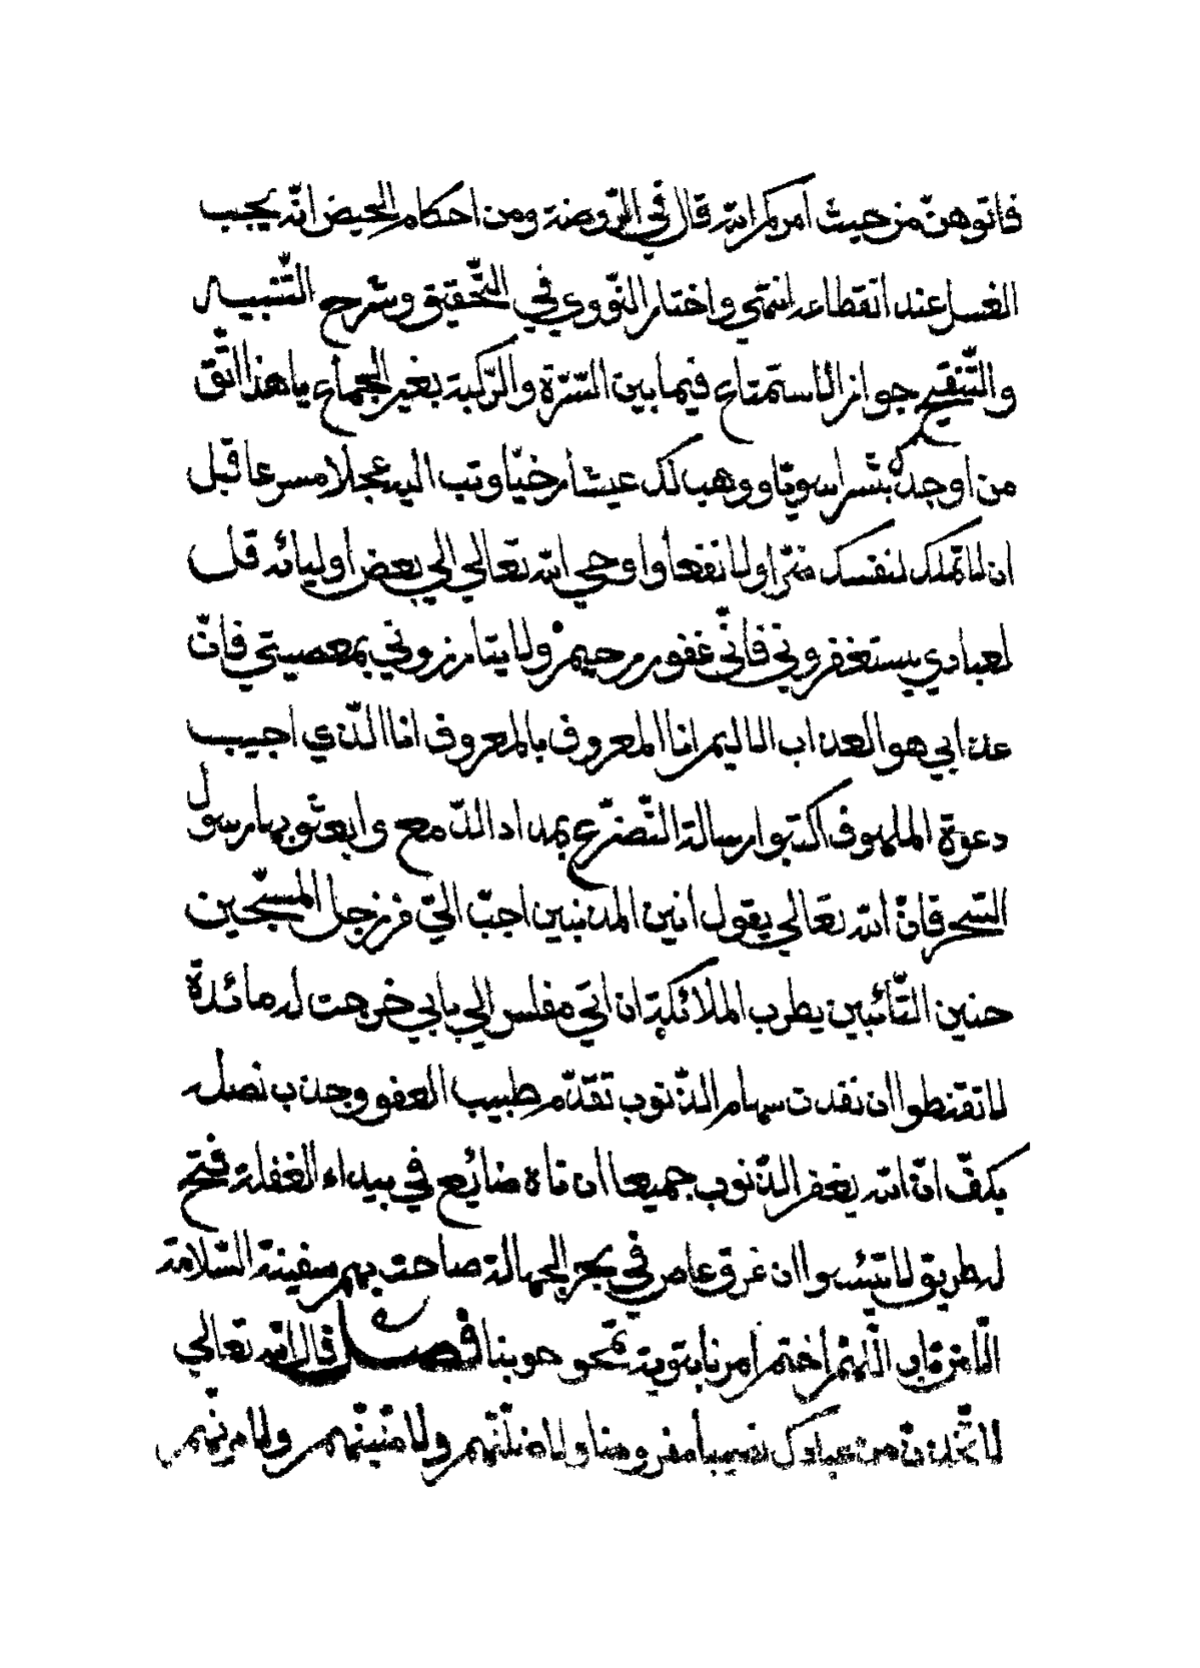 فاتوهنّ من حيث امركم الله قال في الرّوضة ومن احكام الحيض انّه يجب
الغسل عند انقطاعه انتهى واختار النّووي في التّحقيق وشرح التّنبيه
والتّنقيح جواز الاستمتاع فيما بين السّرّة والرّكبة بغير الجماع يا هذا اتّق
من أوجدك بشرا سويّا ووهب لك عيشا رخيّا وتب اليه عجلا مسرعا قبل
ان لا تملك لنفسك ضرّا ولا نفعا وأوحي الله تعالي الي بعض أوليائه قل
لعبادي يستغفروني فانّي غفور رحيم ولا يبارزوني بمعصيتي فانّ
عذابي هو العذاب الاليم انا المعروف بالمعروف انا الّذي اجيب
دعوة الملهوف اكتبوا رسالة التّضرّع بمداد الدّمع وابعثوبها رسول
السّحر فانّ الله تعالي يقول انين المذنبين احبّ اليّ من زجل المسبّحين
حنين التّائبين يطرب الملائكة ان اتي مفلس الي بابي خرجت له مائدة
لا تقنطوا ان نفدت سهام الذّنوب تقدّم طبيب العفو وجذب نصله
بكفّ انّ الله يغفر الذّنوب جميعا ان تاه ضائع في بيداء الغفلة فتح
له طريق لا تيئسوا ان غرق عاص في بحر الجهالة صاحت بهم سفينة السّلامة
الّا من تاب اللّهمّ اختم امرنا بتوبة تمحو حوبنا فصل قال الله تعالي
لاتّخذنّ من عبادك نصيبا مفروضا ولاضلّنّهم ولامنّينّهم ولامرنّهم